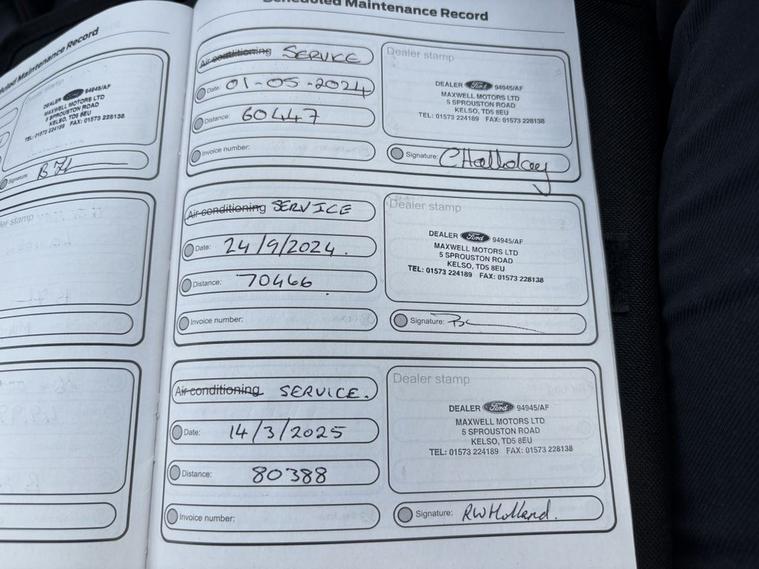 Scheduled Maintenance Record
Scheduled Maintenance Record
Dealer stamp
DEALER Ford 94945/AF
MAXWELL MOTORS LTD
5 SPROUSTON ROAD
KELSO, TD5 8EU
TEL: 01573 224189 FAX: 01573 228138
Signature:
Air conditioning SERVICE
Date: 01-05-2024
Distance: 60447
Invoice number:
Dealer stamp
DEALER Ford 94945/AF
MAXWELL MOTORS LTD
5 SPROUSTON ROAD
KELSO, TD5 8EU
TEL: 01573 224189 FAX: 01573 228138
Signature: CHalloday
Air conditioning SERVICE
Date: 24/9/2024.
Distance: 70466
Invoice number:
Dealer stamp
DEALER Ford 94945/AF
MAXWELL MOTORS LTD
5 SPROUSTON ROAD
KELSO, TD5 8EU
TEL: 01573 224189 FAX: 01573 228138
Signature:
Air conditioning SERVICE.
Date: 14/3/2025
Distance: 80388
Invoice number:
Dealer stamp
DEALER Ford 94945/AF
MAXWELL MOTORS LTD
5 SPROUSTON ROAD
KELSO, TD5 8EU
TEL: 01573 224189 FAX: 01573 228138
Signature: RWHolland.